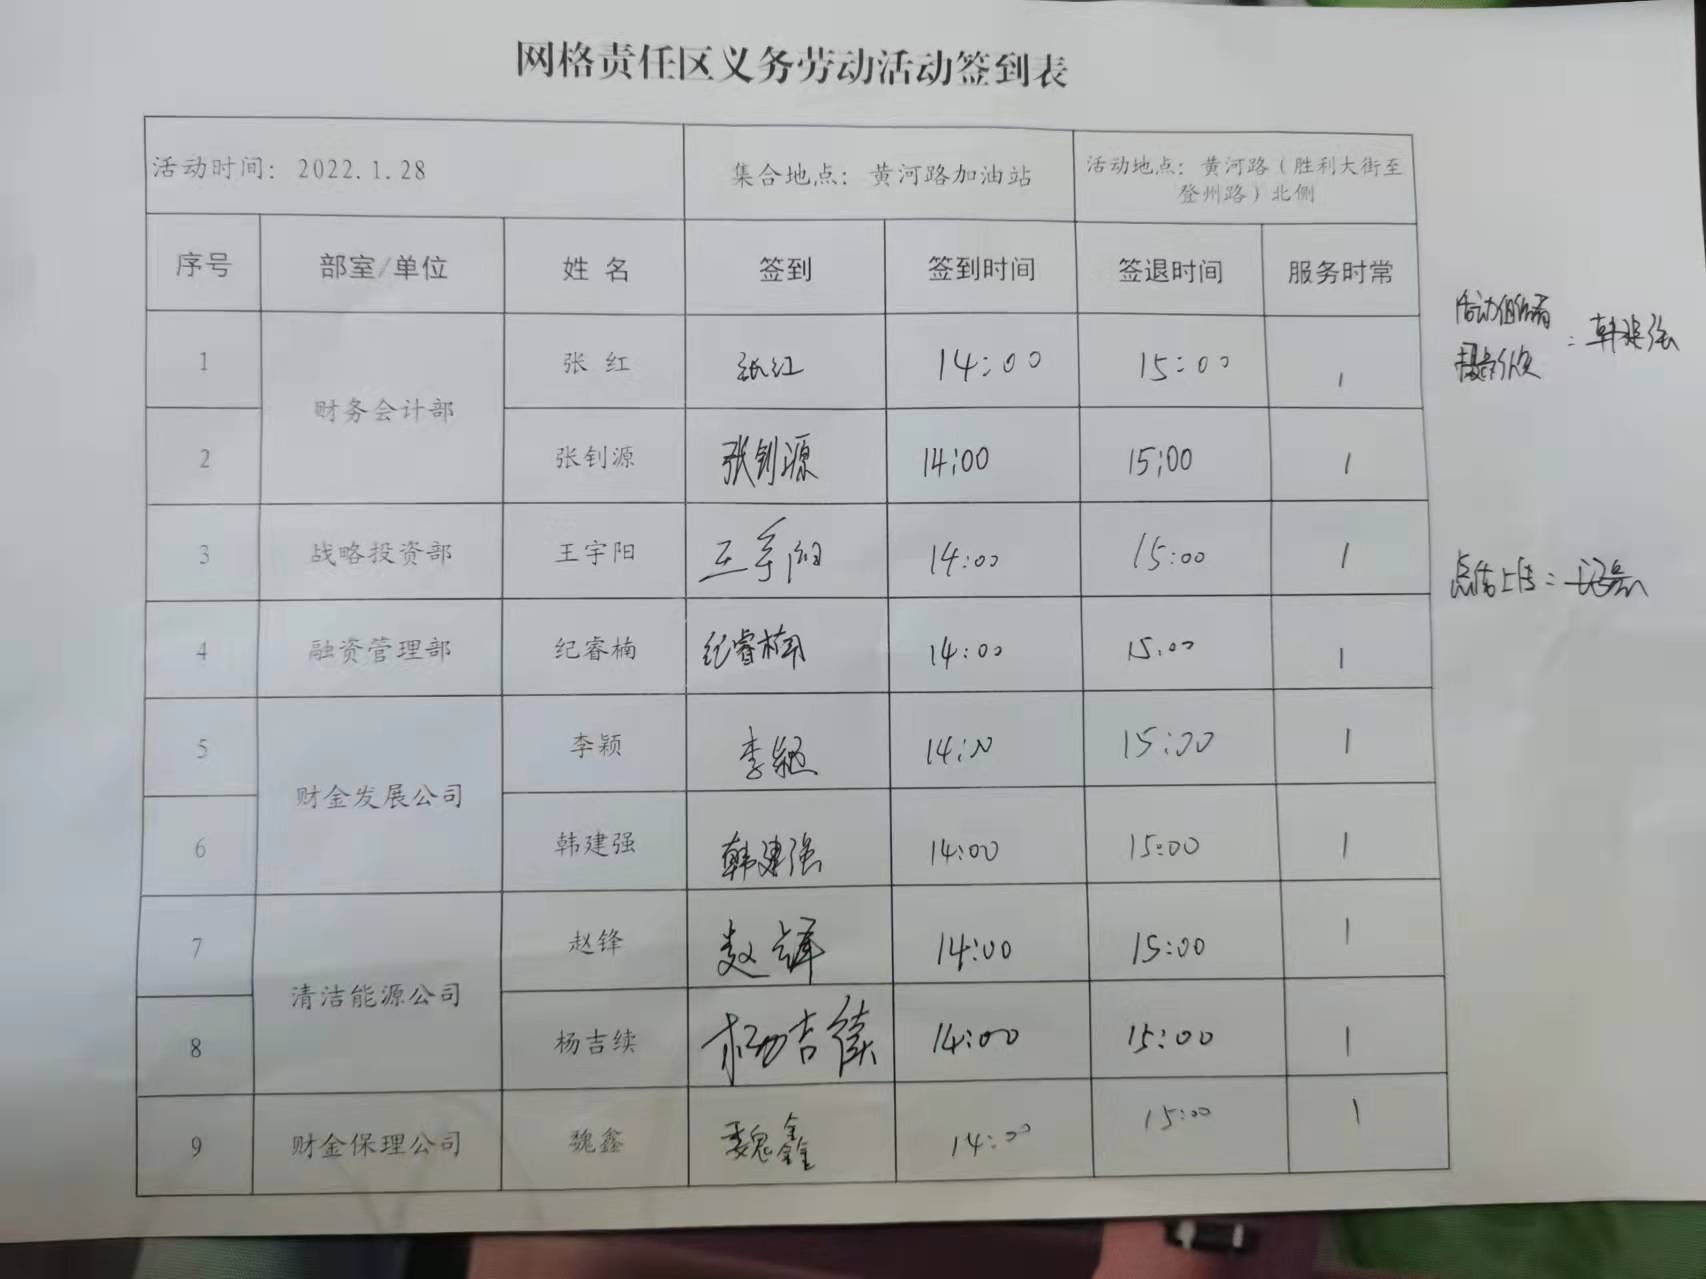 网格责任区义务劳动活动签到表
活动时间：2022.1.28 集合地点：黄河路加油站 活动地点：黄河路（胜利大街至
登州路）北侧
序号 部室/单位 姓 名 签到 签到时间 签退时间 服务时常
1 财务会计部 张 红 张红 14:00 15:00 1
2 张钊源 张钊源 14:00 15:00 1
3 战略投资部 王宇阳 王宇阳 14:00 15:00 1
4 融资管理部 纪睿楠 纪睿楠 14:00 15:00 1
5 财金发展公司 李颖 李颖 14:00 15:00 1
6 韩建强 韩建强 14:00 15:00 1
7 清洁能源公司 赵锋 赵锋 14:00 15:00 1
8 杨吉续 杨吉续 14:00 15:00 1
9 财金保理公司 魏鑫 魏鑫 14:00 15:00 1
活动组织者
：韩建强